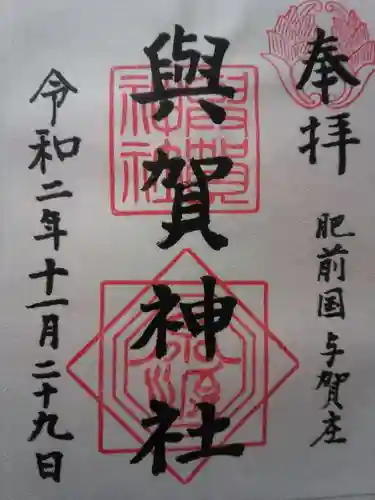 奉拝
肥前国与賀庄
與賀神社
令和二年十一月二十九日